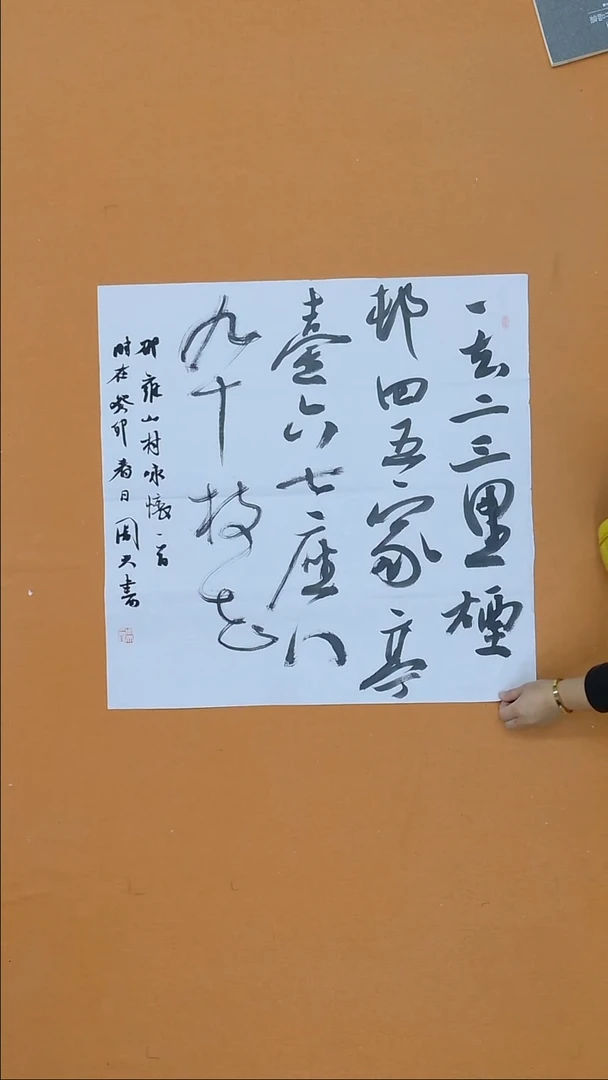 一去二三里煙
邨四五家亭
臺六七座八
九十枝花
邵雍山村咏懷一首
时在癸卯春日周天書